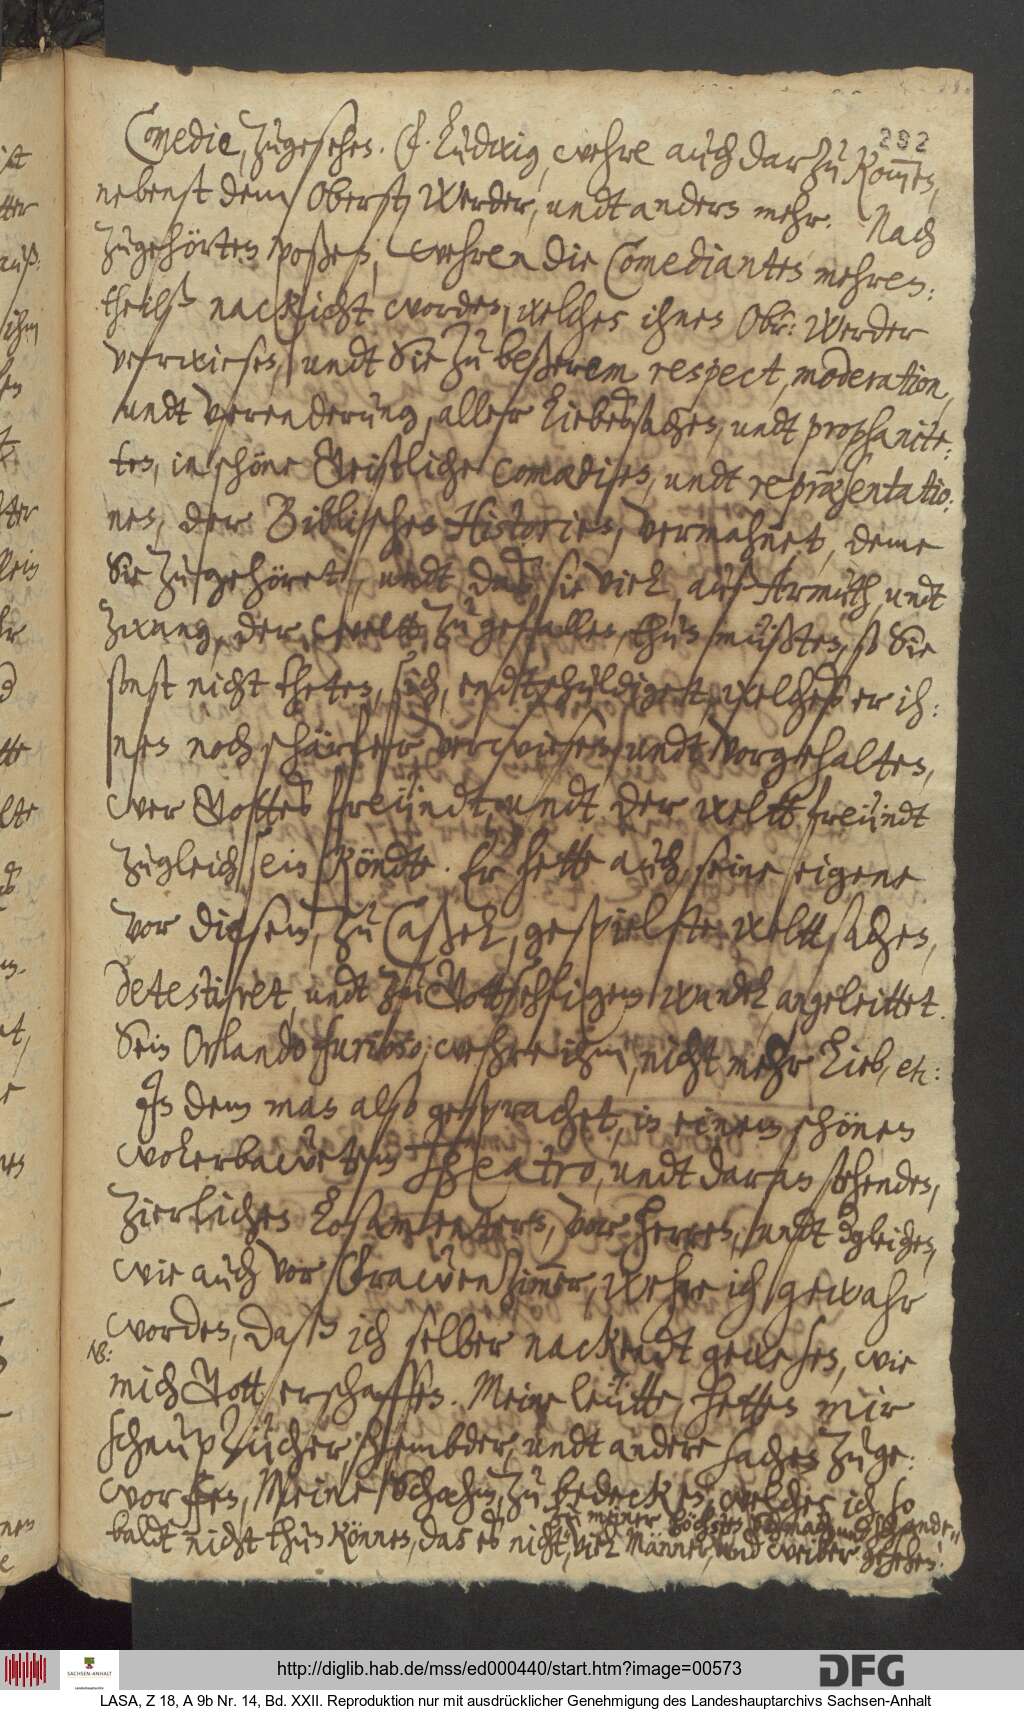 282
Comedie, zugesehen. F. Ludwig, wehre auch darzu kom̅en,
nebenst dem Oberst Werder, undt anders mehr. Nach
zugehörten poßen, wehren die Comediantes mehren:
theilß nackicht worden, welches ihnen Obr: Werder
verwiesen, undt Sie zu beßerem respect, moderation,
undt verenderung, aller Liebessachen, undt prophanite:
ten, in schöne Geistliche comœdien, undt repræsentatio:
nes, der Biblischen Historien, vermahnet, deme
Sie zugehöret, undt das sie viel, auß Armuth, undt
Zwang, der weltt, zu gefallen, thun müßten, so Sie
sonst nicht theten, sich, endtschuldiget, welches er ih:
nen noch schärfer verwiesen, undt vorgehalten,
wer Gottes freündt, undt der weltt freündt
zugleich sein köndte. Er hette auch, seine eigene
vor diesem, zu Caßel, gespielte weltt sachen,
detestiret, undt zu Gottsehligem wandel, angeleittet.
Sein Orlando furioso, wehre ihm, nicht mehr Lieb, etc:
In dem man also gesprachet, in einem schönen
wolerbawetem Theatro, undt daran sehenden,
zierlichen Losamentern, vor Herren, undt dergleichen,
wie auch vor Frawenzim̅er, wehre ich gewahr
worden, daß ich selber nackendt gewesen, wie
NB:
mich Gott erschaffen. Meine leütte, hetten mir
schnuptücher, hembder, undt andere sachen zuge:
worfen, Meine Scham, zu bedecken, welches ich so
baldt nicht thun können, das es nicht, viel Männer, und Weiber gesehen:
zu meiner höchsten Schmach und Schande
http://diglib.hab.de/mss/ed000440/start.htm?image=00573
SACHSEN-ANHALT
DFG
LASA, Z 18, A 9b Nr. 14, Bd. XXII. Reproduktion nur mit ausdrücklicher Genehmigung des Landeshauptarchivs Sachsen-Anhalt